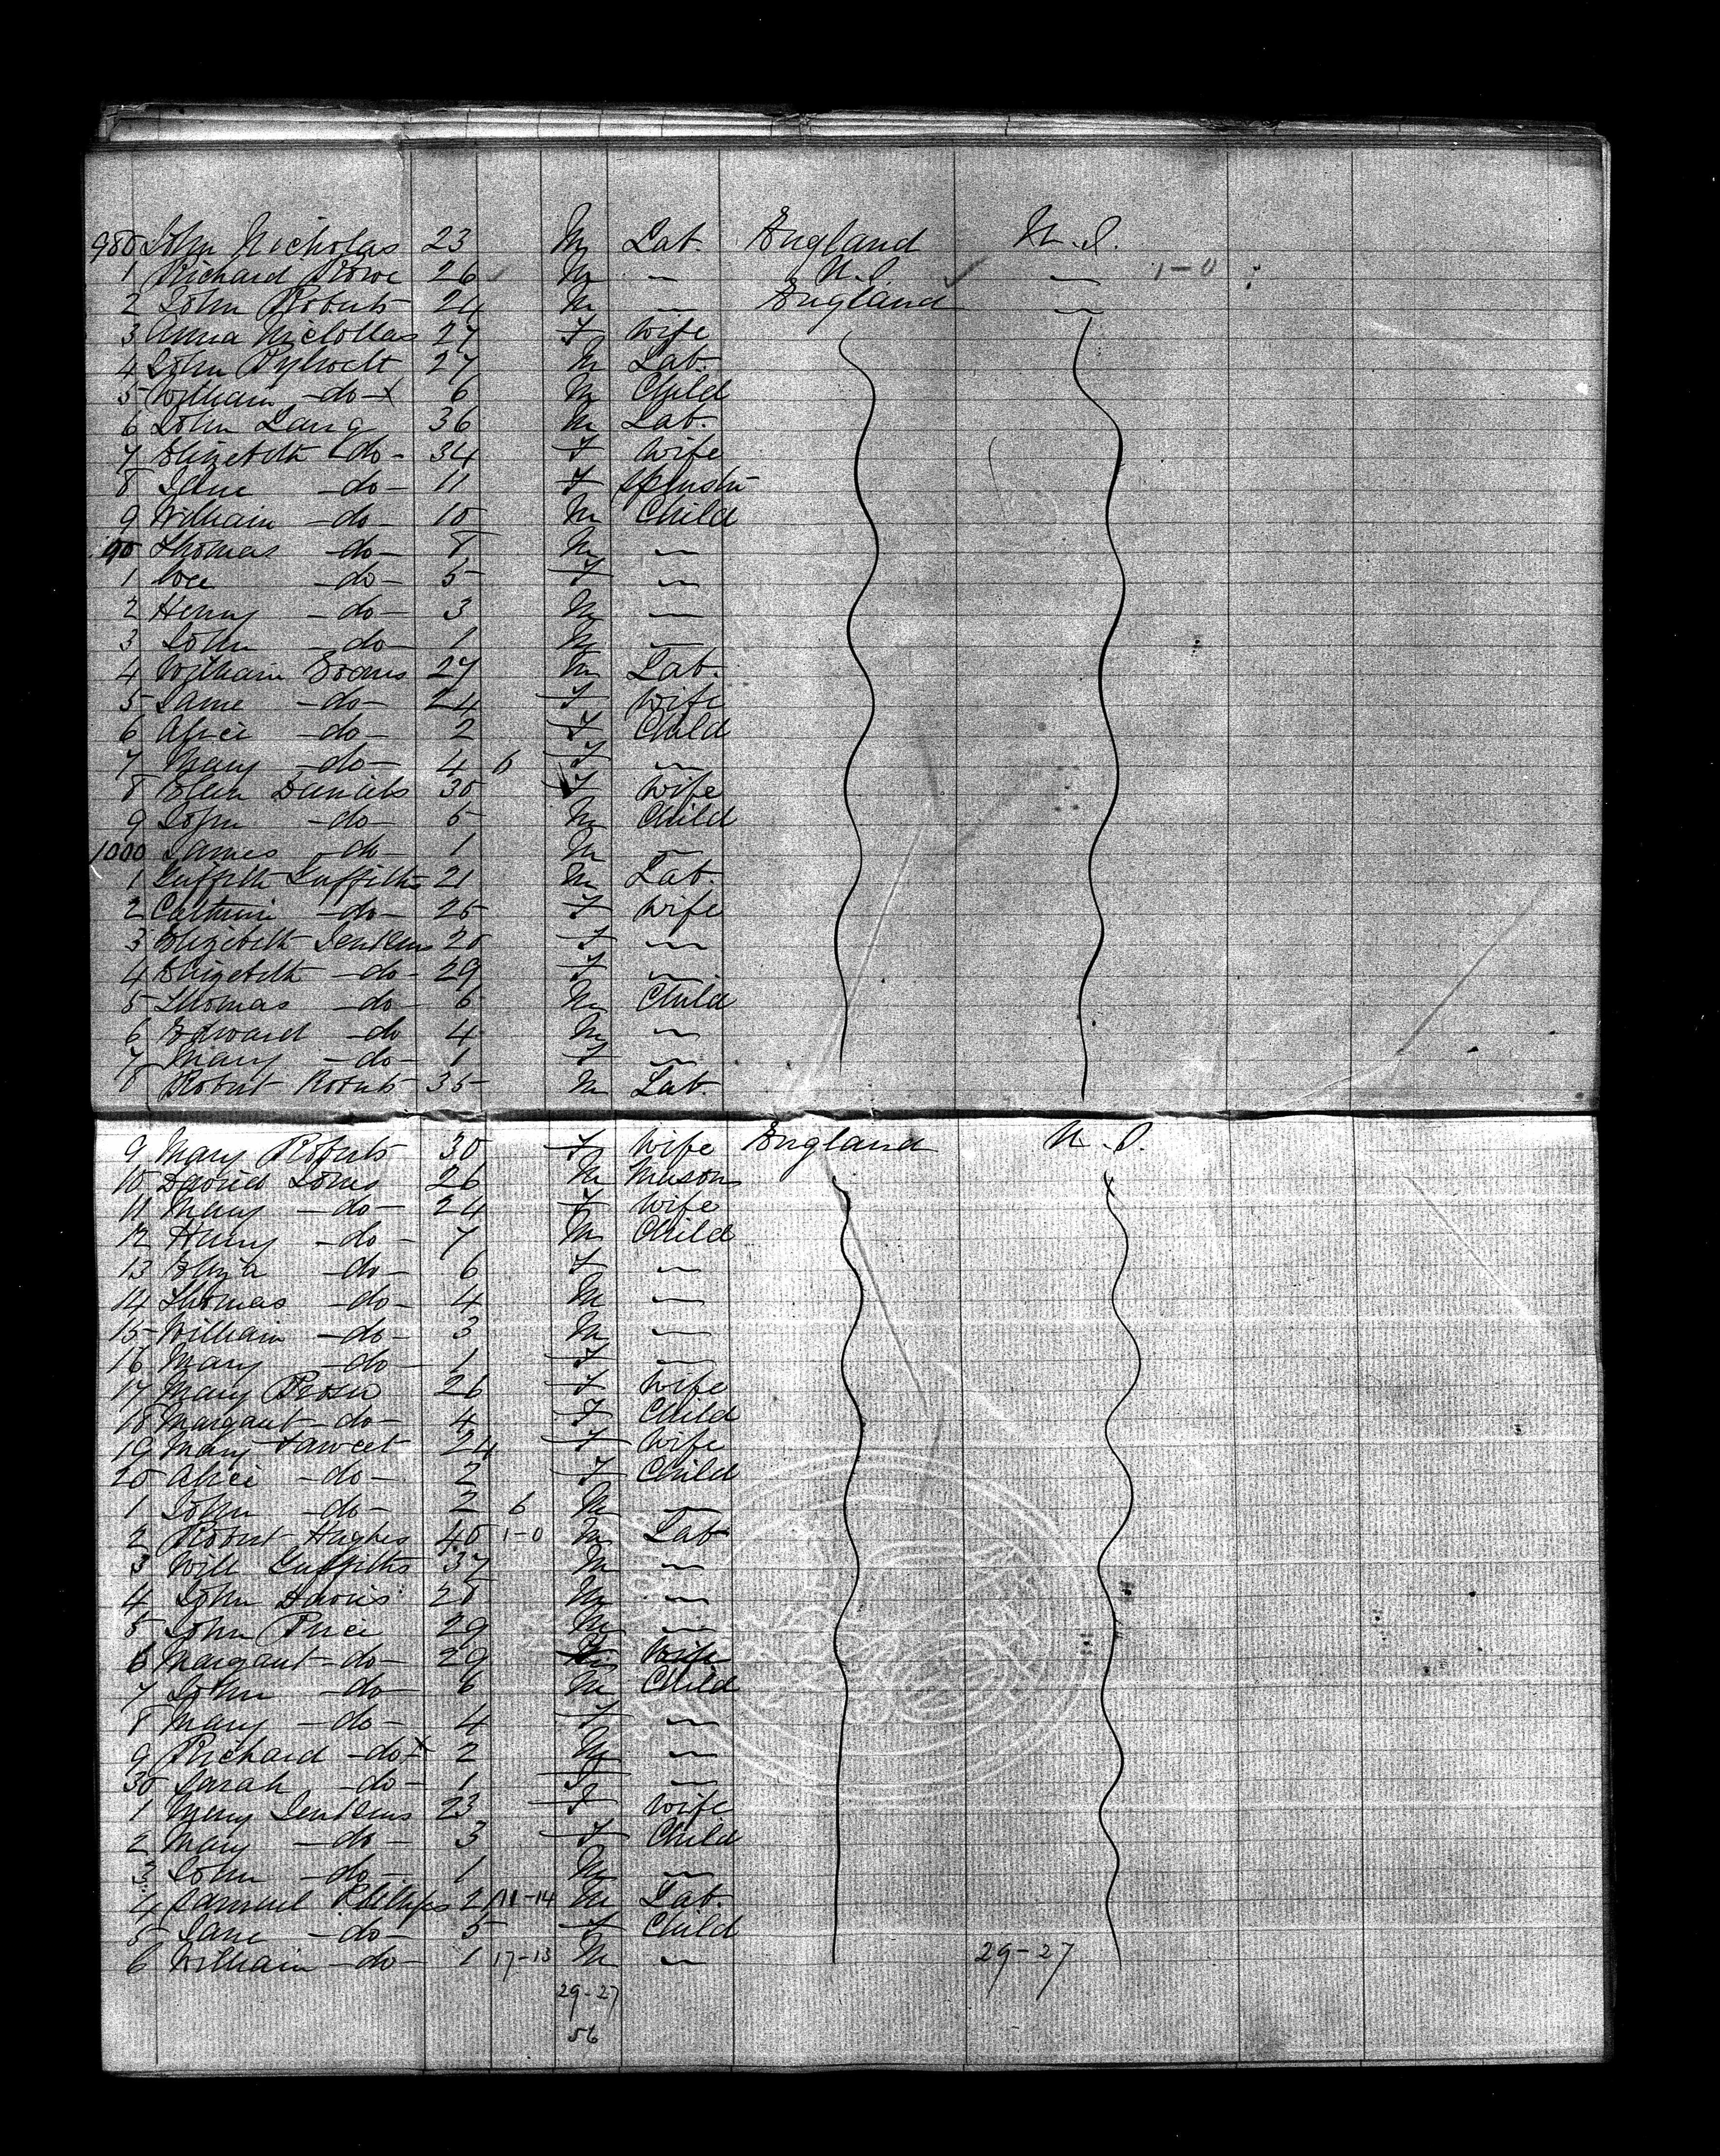 980 John Nicholas 23 M Lab. England U.S.
1 Richard Rowe 26 ✓ M — U.S. ✓ — 1-0
2 John Roberts 24 M — England —
3 Anna Nicollas 27 F Wife
4 John 27 M Lab.
5 William -do- x 6 M Child
6 John Lang 36 M Lab.
7 Elizebeth -do- 34 F Wife
8 Jane -do- 11 F Spinstr
9 William -do- 10 M Child
90 Thomas -do- 8 M —
1 -do- 5 F —
2 Henry -do- 3 M —
3 John -do- 1 M —
4 William Evans 27 M Lab.
5 Jane -do- 24 F Wife
6 Alice -do- 2 F Child
7 Mary -do- 4 6 F —
8 Ellen Daniels 30 F Wife
9 John -do- 5 M Child
1000 James -do- 1 M —
1 Griffith Griffiths 21 M Lab.
2 Cathrine -do- 25 F Wife
3 Elizebeth Jenkins 20 F —
4 Elizebeth -do- 29 F —
5 Thomas -do- 6 M Child
6 Edward -do 4 M —
7 Mary -do- 1 F —
8 Robert Roberts 35 M Lab.
9 Mary Roberts 30 F Wife England U.S.
10 David Jones 26 M Mason
11 Mary -do- 24 F Wife
12 Henry -do- 7 M Child
13 Eliza -do- 6 F —
14 Thomas -do- 4 M —
15 William -do- 3 M —
16 Mary -do- 1 F —
17 Mary Prosser 26 F Wife
18 Margaret -do- 4 F Child
19 Mary Fawcet 24 F Wife
20 Alice -do- 2 F Child
1 John -do- 2 6 M —
2 Robert Hughes 40 1-0 M Lab
3 Will Griffiths 37 M —
4 John Davis 28 M —
5 John Price 29 M —
6 Margaret -do- 29 F. Wife
7 John -do- 6 M Child
8 Mary -do- 4 F —
9 Richard -do- x 2 M —
30 Sarah -do- 1 F —
1 Mary Jenkins 23 F Wife
2 Mary -do- 3 F Child
3 John -do- 1 M —
4 Samuel Phillips 2 11-14 M Lab.
5 Jane -do- 5 F Child
6 William -do- 1 17-13 M — 29-27
29-27
56